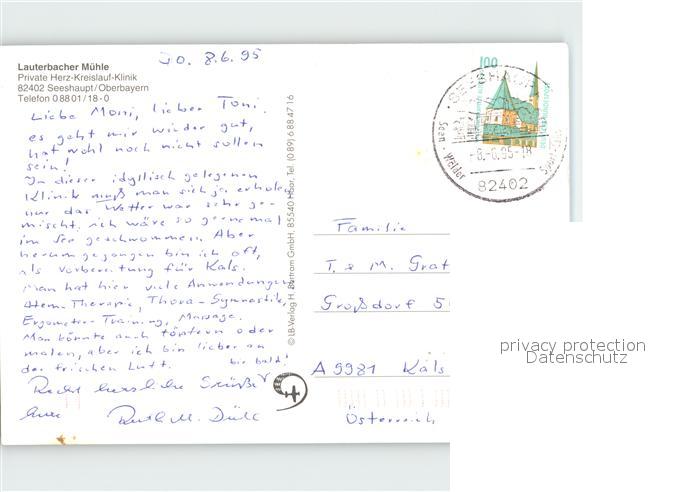 Lauterbacher Mühle
Private Herz-Kreislauf-Klinik
82402 Seeshaupt/Oberbayern
Telefon 08801/18-0
8.6.95
Liebe Moni, lieber Toni.
es geht mir wieder gut,
hat wohl noch nicht sollen
sein!
In dieser idyllisch gelegenen
Klinik muß man sich ja erholen
nur das Wetter war sehr ge-
mischt. ich wäre so gerne mal
im See geschwommen. Aber
herumgegangen bin ich oft,
als Vorbereitung für Kals.
Man hat hier viele Anwendungen
Atem-Therapie, Thora-Gymnastik,
Ergometer-Training, Massage.
Man könnte auch töpfern oder
malen, aber ich bin lieber an
der frischen Luft. bis bald!
Recht herzliche Grüße
Ruth M.
© LB-Verlag H. GmbH, 85540 Haar, Tel. (089) 6884716
100
SEESHAUPT
Seen - Wälder
-8.-6.95-18
82402
Familie
T. & M. Grat
Großdorf 5
A 9981 Kals
Österreich
privacy protection
Datenschutz